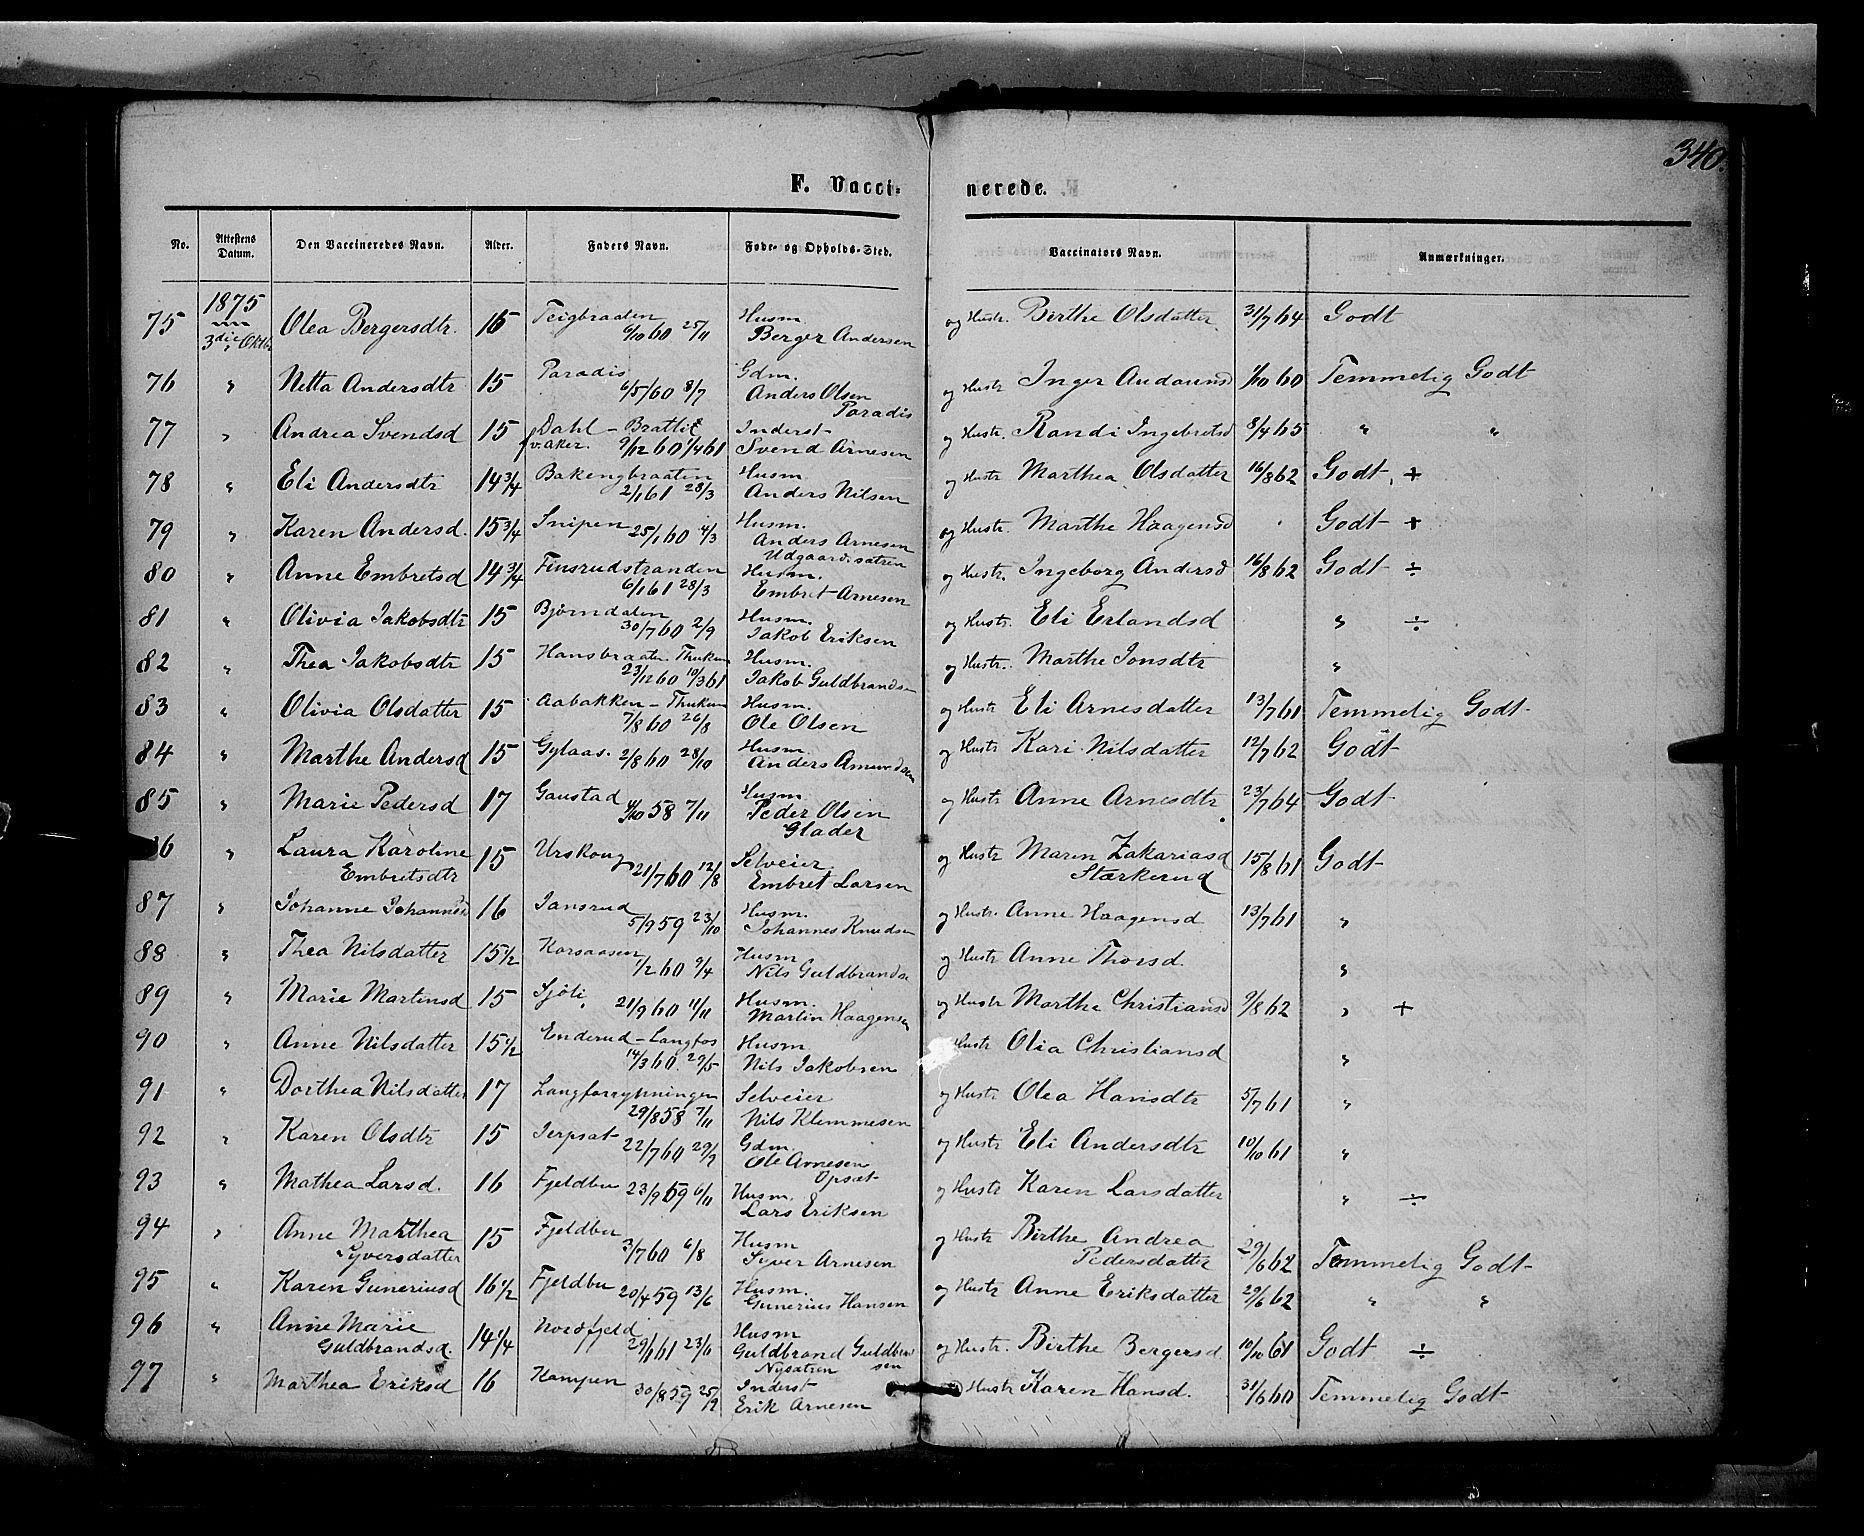 340.
F. Vacci= nerede.
No. Attestens Datum. Den Vaccineredes Navn. Alder. Faders Navn. Føde- og Opholds-Sted. Vaccinators Navn. Anmærkninger.
1875
75 3die Oktbr Olea Bergersdtr. 16 Teigbraaten 6/10 60 25/11 Husm. Berger Andersen og Hustr. Birthe Olsdatter 31/7 64 Godt
76 " Netta Andersdtr 15 Paradis 6/5/60 8/7 Gdm. Anders Olsen Paradis og Hustr Inger Audunsd 1/10 60 Temmelig Godt
77 " Andrea Svendsd 15 Dahl - Bratlit v. Aker. 9/12 60 1/4 61 Inderst Svend Arnesen og Hustr. Randi Ingebretsd 8/4 65 " "
78 " Eli Andersdtr 14 3/4 Bakengbraaten 2/1 61 28/3 Husm. Anders Nilsen og Hustr Marthea Olsdatter 16/8 62 Godt, +
79 " Karen Andersd. 15 3/4 Snipen 25/1 60 4/3 Husm. Anders Arnesen Udgaardsætren og Hustr. Marthe Haagensd " Godt +
80 " Anne Embretsd 14 3/4 Finsrudstranden 6/1 61 28/3 Husm. Embret Arnesen og Hustr. Ingeborg Andersd 16/8 62 Godt ÷
81 " Olivia Jakobsdtr 15 Bjørndalen 30/7 60 2/9 Husm. Jakob Eriksen og Hustr. Eli Erlandsd " ÷
82 " Thea Jakobsdtr 15 Hansbraaten Thukun 23/12 60 10/3 61 Husm. Jakob Guldbrandsen og Hustr. Marthe Jonsdtr "
83 " Olivia Olsdatter 15 Aabakken - Thukun 7/8 60 26/8 Husm. Ole Olsen og Hustr Eli Arnesdatter 13/7 61 Temmelig Godt
84 " Marthe Andersd 15 Gylaas. 2/8 60 28/10 Husm. Anders Amundsen og Hustr Kari Nilsdatter 12/7 62 Godt
85 " Marie Pedersd 17 Gaustad 4/10 58 7/11 Husm. Peder Olsen Glader og Hustr Anne Arnesdtr 23/7 64 Godt
86 " Laura Karoline Embretsdtr 15 Urskoug 21/7 60 12/8 Selveier Embret Larsen og Hustr Maren Zakariasd Stærkerud 15/8 61 Godt
87 " Johanne Johannesd 16 Jansrud 5/9 59 23/10 Husm. Johannes Knudsen og Hustr. Anne Haagensd 13/7 61 "
88 " Thea Nilsdatter 15 1/2 Korsaasen 1/2 60 9/4 Husm Nils Guldbrandsen og Hustr Anne Thorsd. "
89 " Marie Martinsd 15 Sjøli 21/9 60 11/11 Husm. Martin Haagensen og Hustr Marthe Christiansd 9/8 62 " +
90 " Anne Nilsdatter 15 1/2 Enderud - Langfos 14/3 60. 29/5 Husm Nils Jakobsen Hustr Olia Christiansd "
91 " Dorthea Nilsdatter 17 Langfosrypningen 29/8 58 7/11 Selveier Nils Klemmesen og Hustr Olea Hansdtr 5/7 61 "
92 " Karen Olsdtr 15 Jerpsæt 22/7 60 29/9 Gdm. Ole Arnesen Opsæt og Hustr Eli Andersdtr 10/10 61 "
93 " Mathea Larsd. 16 Fjeldbu 23/9 59 6/11 Husm. Lars Eriksen og Hustr Karen Larsdatter " ÷
94 " Anne Marthea Syversdatter 15 Fjeldbu 3/7 60 6/8 Husm Syver Arnesen og Hustr Birthe Andrea Pedersdatter 29/6 62 Temmelig Godt
95 " Karen Guneriusd 16 1/2 Fjeldbu 20/4 59 13/6 Husm. Gunerius Hansen og Hustr Anne Eriksdatter 29/6 62 " "
96 " Anne Marie Guldbrandsd. 14 1/4 Nordfjeld 29/1 61 23/6 Husm Guldbrand Guldbrandsen Nysætren og Hustr. Birthe Bergersd. 10/10 61 Godt ÷
97 " Marthea Eriksd 16 Kampen 30/8 59 25/9 Inderst Erik Arnesen Hustr Karen Hansd. 31/6 60 Temmelig Godt